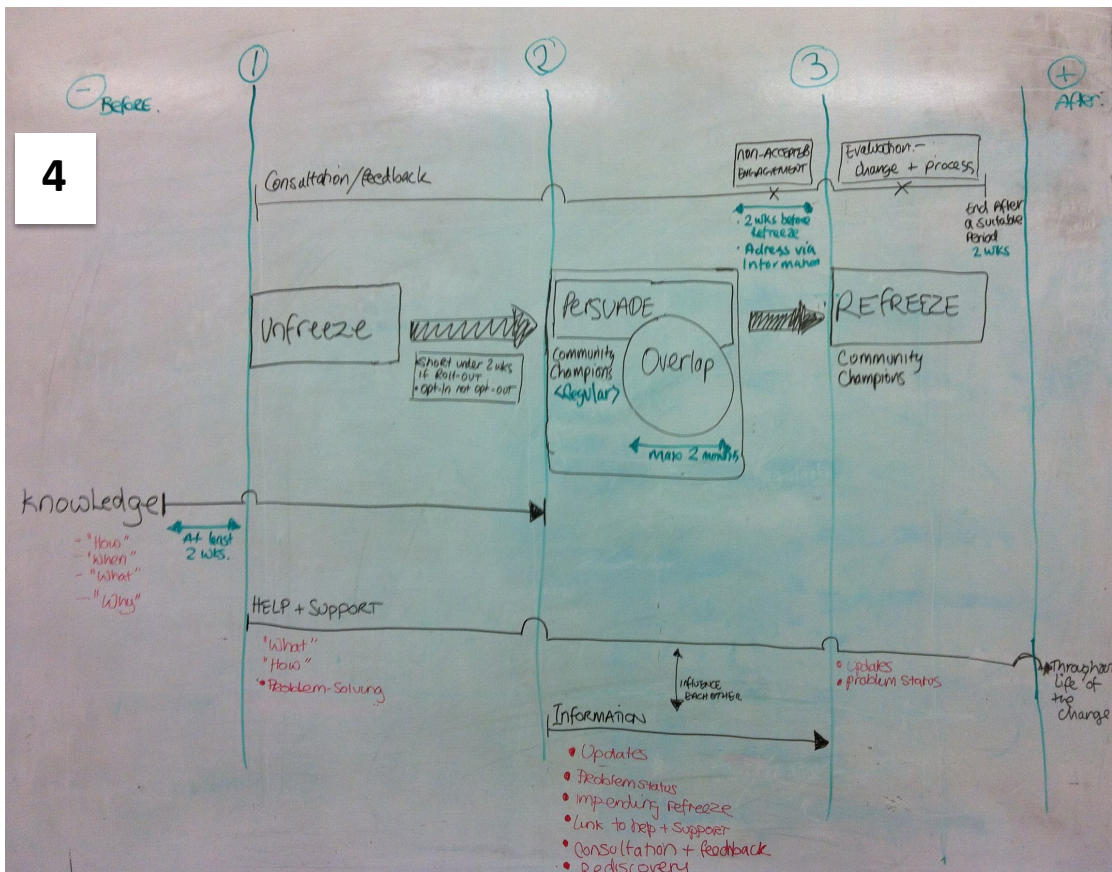 1
2
3
-
Before.
+
After.
4
Consultation/feedback
NON-ACCEPTED
ENGAGEMENT
Evaluation -
change + process
• 2 wks before
Refreeze
• Adress via
Information
End After
a suitable
Period
2 wks
Unfreeze
• Short under 2 wks
if Roll-out
• opt-in not opt-out
PERSUADE
Community
Champions
<Regular>
Overlap
max 2 months
REFREEZE
Community
Champions
Knowledge
At least
2 wks.
- "How"
- "When"
- "What"
- "Why"
HELP + SUPPORT
"What"
"How"
• Problem-Solving
INFLUENCE
EACH OTHER
• Updates
• problem status
Throughout
life of
the
change
INFORMATION
• Updates
• Problem status
• Impending refreeze
• Link to help + support
• Consultation + feedback
• Rediscovery